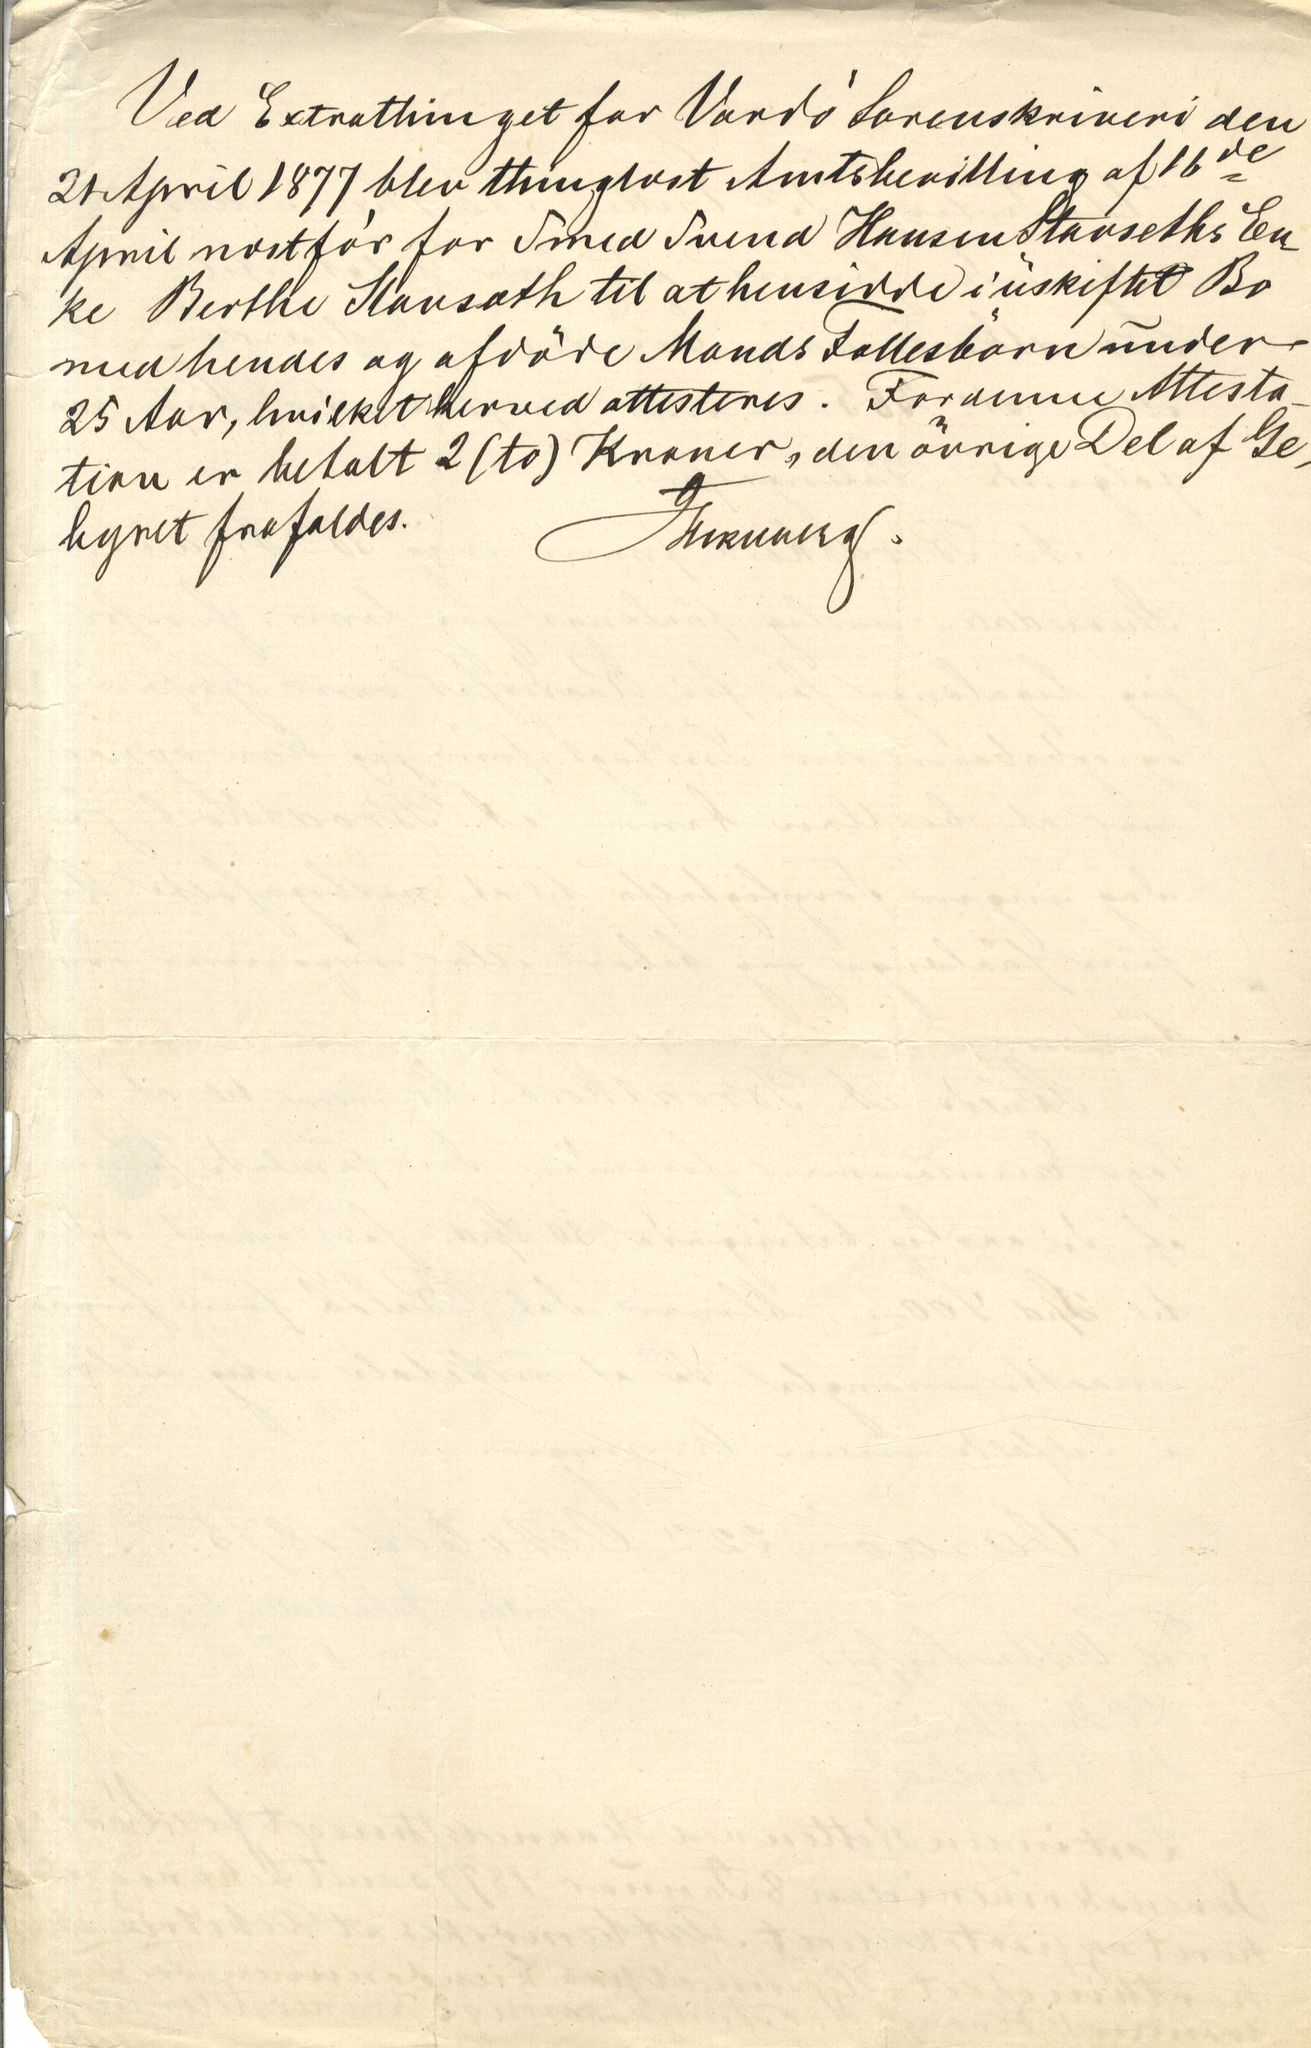 Ved Extrathinget for Vardö Sorenskriveri den
21 April 1877 blev thinglæst Amtsbevilling af 16de
April næstför for Smed Svend Hansen Stavseths En-
ke Berthe Stavseth til at hensidde i uskiftet Bo
med hendes og afdöde Mands Fællesbörn under
25 Aar, hvilket herved attesteres. For denne Attesta-
tion er betalt 2 (to) Kroner, den övrige Del af Ge-
byret frafaldes.